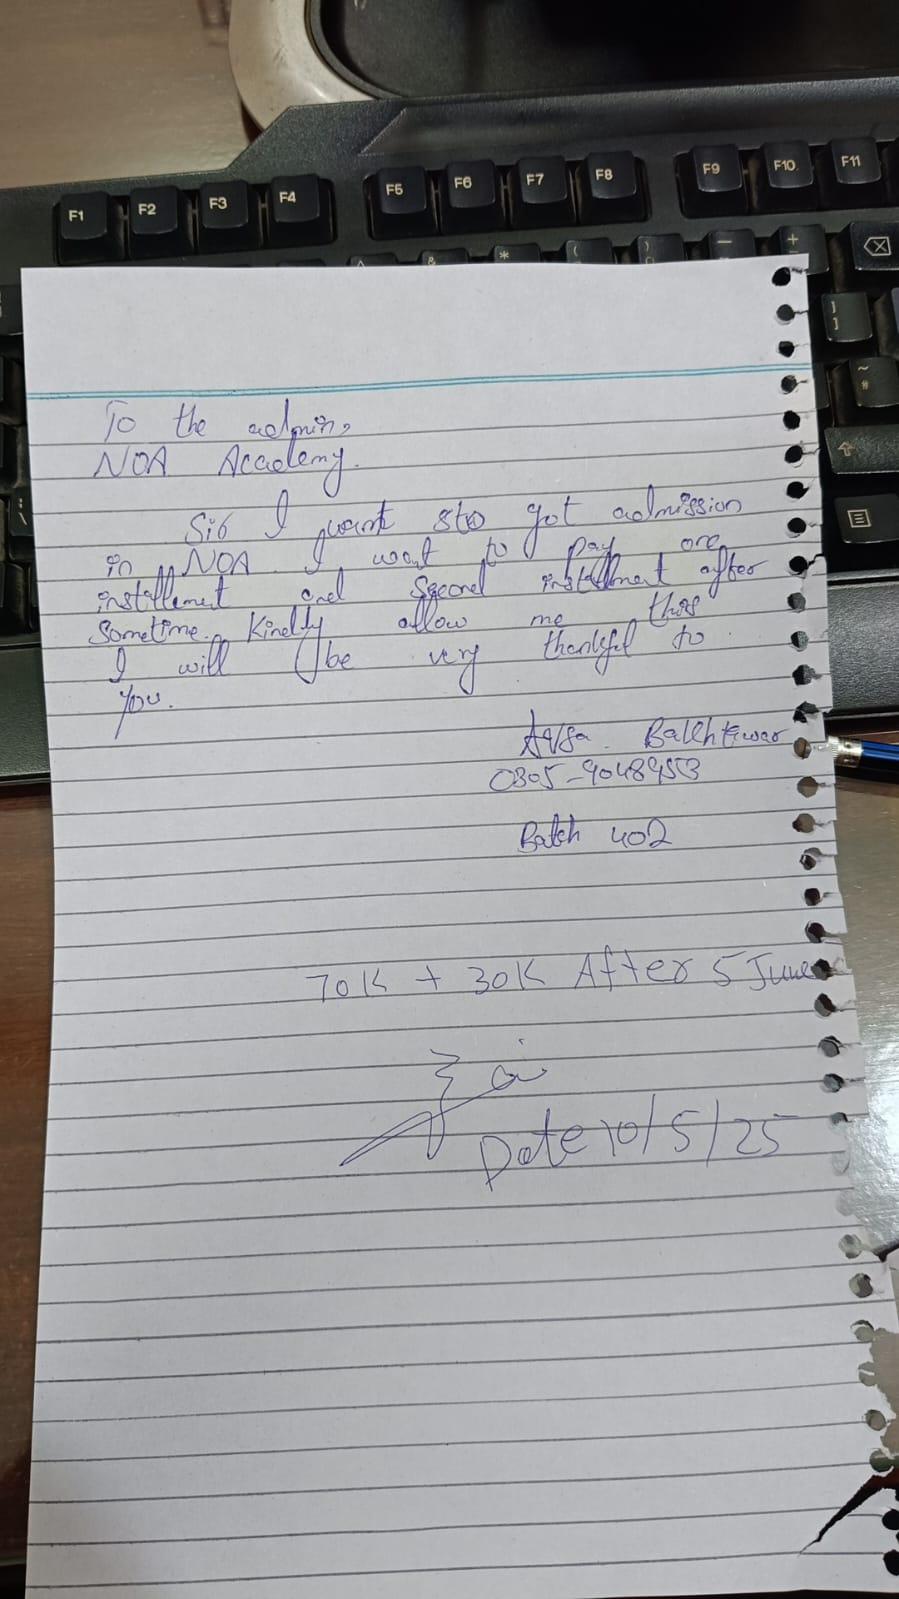 F1 F2 F3 F4 F5 F6 F7 F8 F9 F10 F11
To the admin,
NOA Academy.
Sir I want to get admission
in NOA. I want to pay one
installement and second installment after
sometime. Kindly allow me this
I will be very thankful to
you.
Bakhtawar
Batch 402
70K + 30K After 5 June
Date 10/5/25